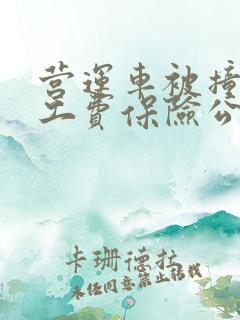 营运车被撞
工费保险公
卡珊德拉
未经同意禁止转载